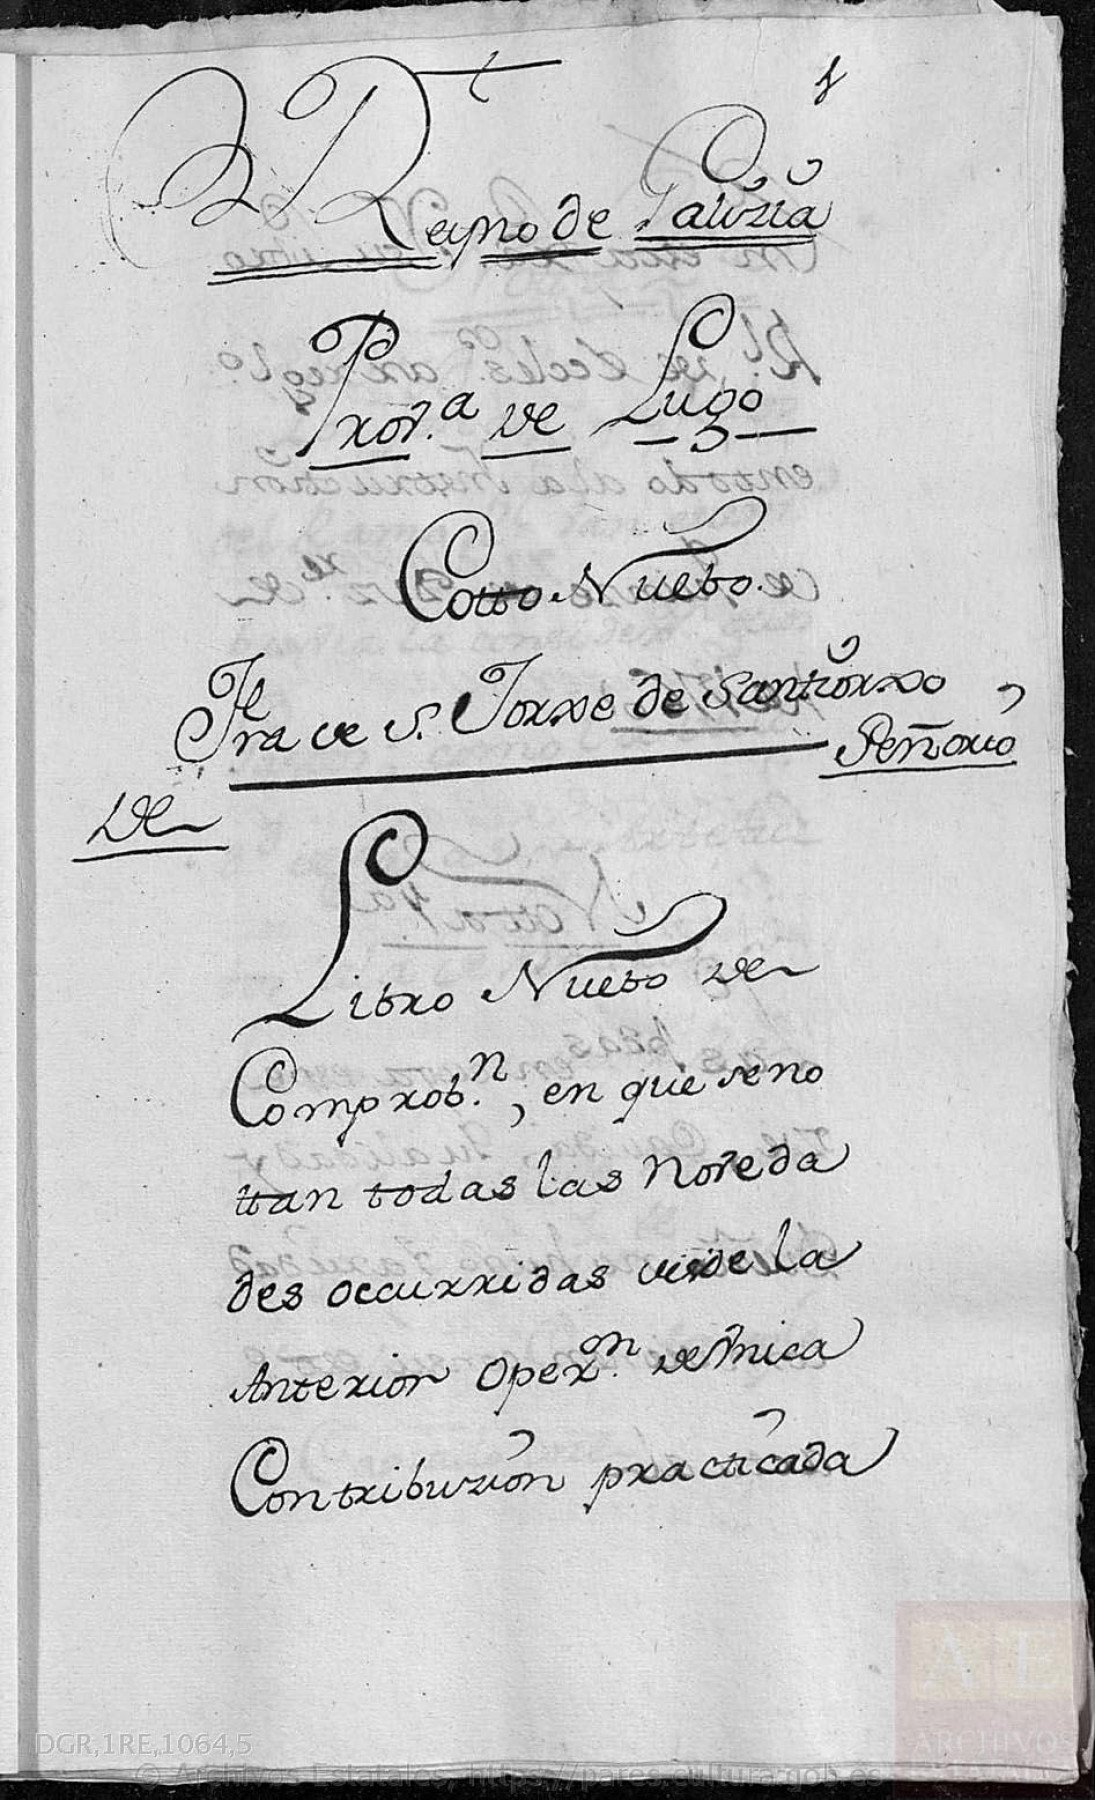 1
Reyno de Galizia
Prov.ª de Lugo
Cotto Nuebo.
Fra de S. Jorxe de Santiorxo
Señorio
De
Libro Nuebo de
Comprob.n, en que se no
ttan todas las Noveda
des occurridas desde la
Anterior Oper.on de Vnica
Contribuzion practicada
DGR,1RE,1064,5
© Archivos Estatales, https://pares.cultura.gob.es
AE
ARCHIVOS